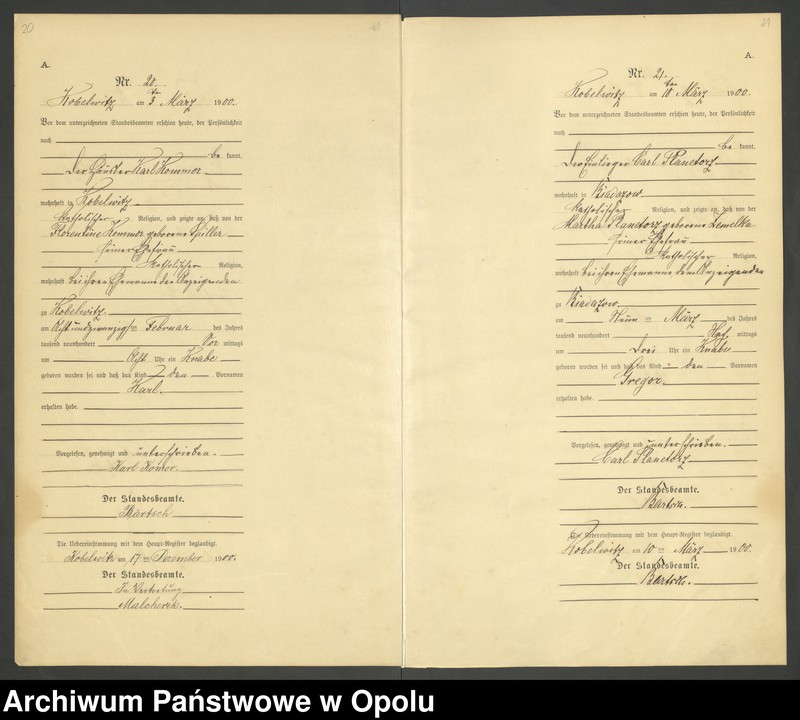 20
A.
Nr. 20.
Kobelwitz am 3ten März 1900.
Vor dem unterzeichneten Standesbeamten erschien heute, der Persönlichkeit
nach
be kannt,
der Häusler Karl Kommor
wohnhaft in Kobelwitz
katholischer Religion, und zeigte an, daß von der
Florentine Kommor geborene Spiller
seiner Ehefrau
katholischer Religion,
wohnhaft bei ihren Ehemanne den Anzeigenden
zu Kobelwitz
am Achtundzwanzigsten Februar des Jahres
tausend neunhundert Vor mittags
um Acht Uhr ein Knabe
geboren worden sei und daß das Kind den Vornamen
Karl.
erhalten habe.
Vorgelesen, genehmigt und unterschrieben.
Karl Komor.
Der Standesbeamte.
Bartsch
Die Uebereinstimmung mit dem Haupt-Register beglaubigt.
Kobelwitz am 17ten Dezember 1900.
Der Standesbeamte.
In Vertretung
21
A.
Nr. 21.
Kobelwitz am 10ten März 1900.
Vor dem unterzeichneten Standesbeamten erschien heute, der Persönlichkeit
nach
be kannt,
der Einlieger Carl Planetorz
wohnhaft in
katholischer Religion, und zeigte an, daß von der
Martha Planetorz geborene Zemelka
seiner Ehefrau
katholischer Religion,
wohnhaft bei ihren Ehemanne dem Anzeigenden
zu
am Neun ten März des Jahres
tausend neunhundert Nach mittags
um Drei Uhr ein Knabe
geboren worden sei und daß das Kind den Vornamen
Gregor.
erhalten habe.
Vorgelesen, genehmigt und unterschrieben.
Carl Planetorz
Der Standesbeamte.
Die Uebereinstimmung mit dem Haupt-Register beglaubigt.
Kobelwitz am 10ten März 1900.
Der Standesbeamte.
Archiwum Państwowe w Opolu